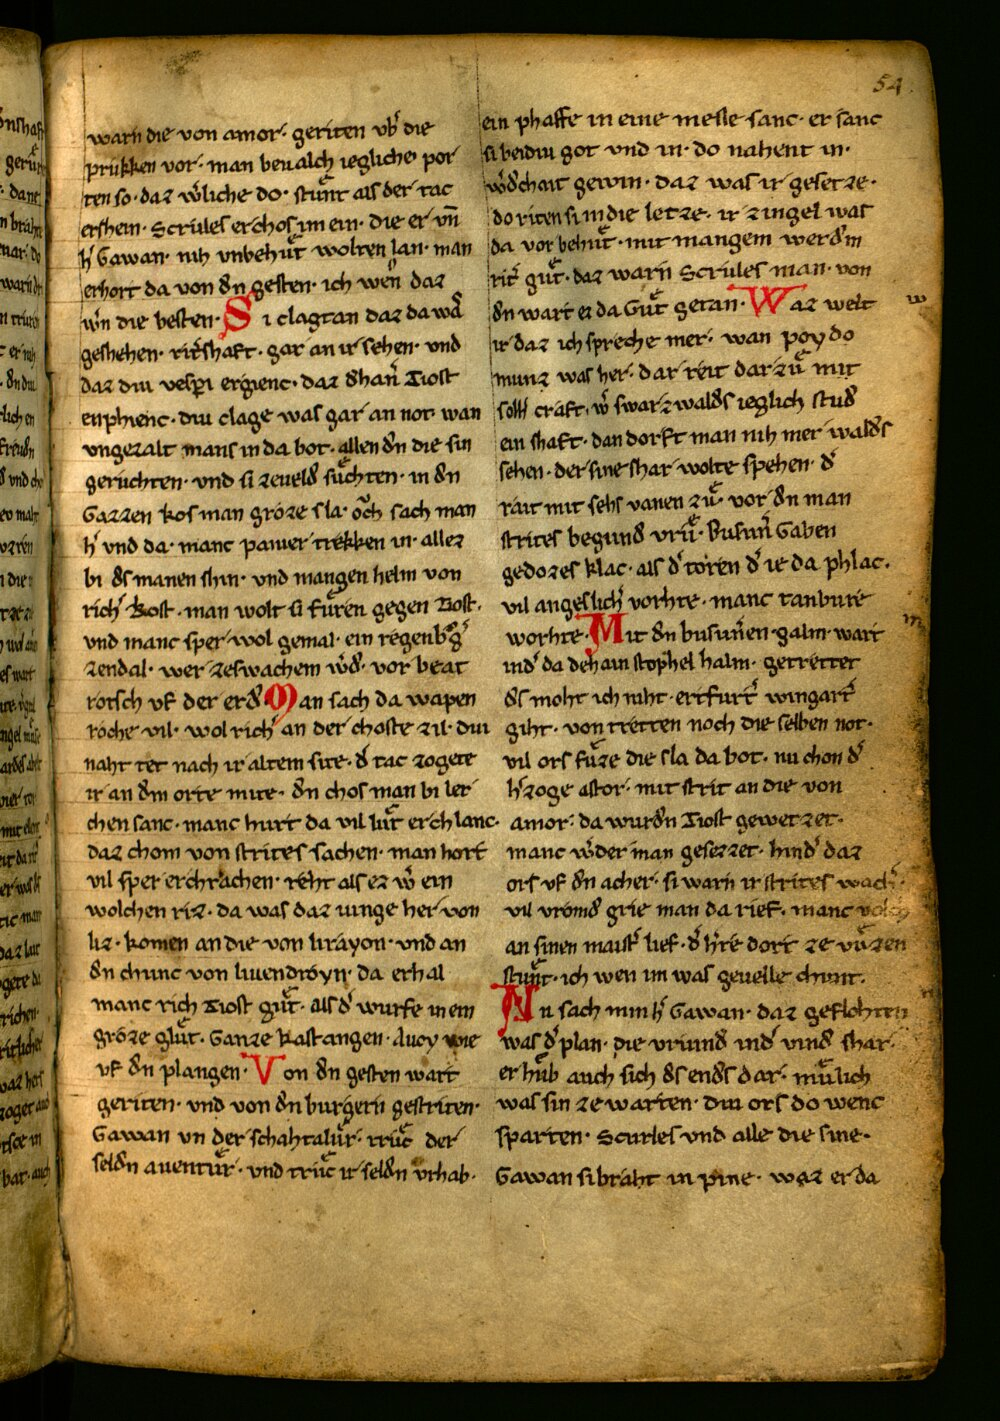 54
warn die von amor· geriten vb̾ die
prukken vor· man bevalch iegliche por
ten so· daz w̾liche do· stuͤnt als der tac
ershein· Scrules erchos im ein· die er vn̄
h̾ Gawan· nih unbehuͤt wolten lan· man
erhort da von d̾n gesten· ich wen daz
w̾n die besten· Si clagtan daz da wa̾
geshehen· rit̾shaft· gar an ir sehen· vnd
daz diu vesp̾i ergienc· daz d̾han̄ Tiost
enphienc· diu clage was gar an not· wan
vngezalt mans in da bot· allen d̾n die sin
geruchten· vnd si zeueld̾ suͤchten· in d̾n
Gazzen kos man groze sla· oͮch sach man
h̾ vnd da· manc panier trekken in· allez
bi d̾s manen shin· vnd mangen helm von
rich̾ kost· man wolt si fuͤren gegen Tiost·
vnd manc sper wol gemal· ein regenb̾g̾
zendal· wer zeswachem w̾d̾· vor beat
rotsch vf der erd̾ Man sach da wapen
roche vil· wol rich̾ an der choste zil· diu
naht tet nach ir altem site· d̾ tac zogete
ir an d̾m orte mite· d̾n chos man bi ler
chen sanc· manc hurt da vil luͤt erchlanc·
daz chom von strites sachen· man hort
vil sper erchrachen· reht als ez w̾ ein
wolchen riz· da was daz iunge her von
liz· komen an die von lirayon· vnd an
d̾n chunc von liuendroyn· da erhal
manc rich Tiost guͤt· als d̾ wurfe in ein
groze gluͤt· Ganze kastangen· Auoy wie
vf d̾n plangen· Von d̾n gesten wart
geriten· vnd von d̾n burgern gestriten·
Gawan vn der schahtaluͤr· truͤc der
seld̾n auentuͤr· vnd truͤc ir seld̾n vrhab·
ein phaffe in eine messe sanc· er sanc
si beidiu got vnd in· do nahent in·
w̾d̾chait gewin· daz was ir gesetze·
do riten si in die letze· ir zingel was
da vor behuͤt· mit mangem werd̾m
rit̾ guͤt· daz warn Scrules man· von
d̾n wart ez da Guͤt getan· Waz welt
w
ir daz ich spreche mer· wan poydo
munz was her· dar reit dar zuͤ mit
solh̾ craft· w̾ swarzwald̾s ieglich stud̾
ein shaft· dan dorft man nih mer wald̾s
sehen· der sine shar wolte spehen· d̾
rait mit sehs vanen zuͤ· vor d̾n man
strites begund̾ vruͤ· Busun̄ Gaben
gedozes klac· als d̾ toren d̾ ie da phlac·
vil angeslich̾ vorhte· manc tanbure
worhte· Mit d̾n busun̄en galm wart
m
ind̾ da dehain stoph̾el halm· getrettet
d̾s moht ich niht· ertfurt̾ wingart̾
giht· von tretten noch die selben not·
vil ors fuͤze die sla da bot· nu chon d̾
h̾zoge astor· mit strit an die von
amor· da wurd̾n Tiost gewetzet·
manc w̾der man gesezzet· hind̾ daz
ors vf d̾n acher· si warn ir strites wach̾·
vil vromd̾ grie man da rief· manc
an sinen maist̾ lief· d̾ h̾re dort ze vuͤzen
stuͤnt· ich wen im was gevelle chunt·
Nn sach min h̾ Gawan· daz geflohten
was d̾ plan· die vriund̾ ind̾ vind̾ shar·
er huͤb auch sich d̾s end̾s dar· muͤlich
was sin ze warten· diu ors do wenc
sparten· Scurles vnd alle die sine·
Gawan si braht in pine· waz er da